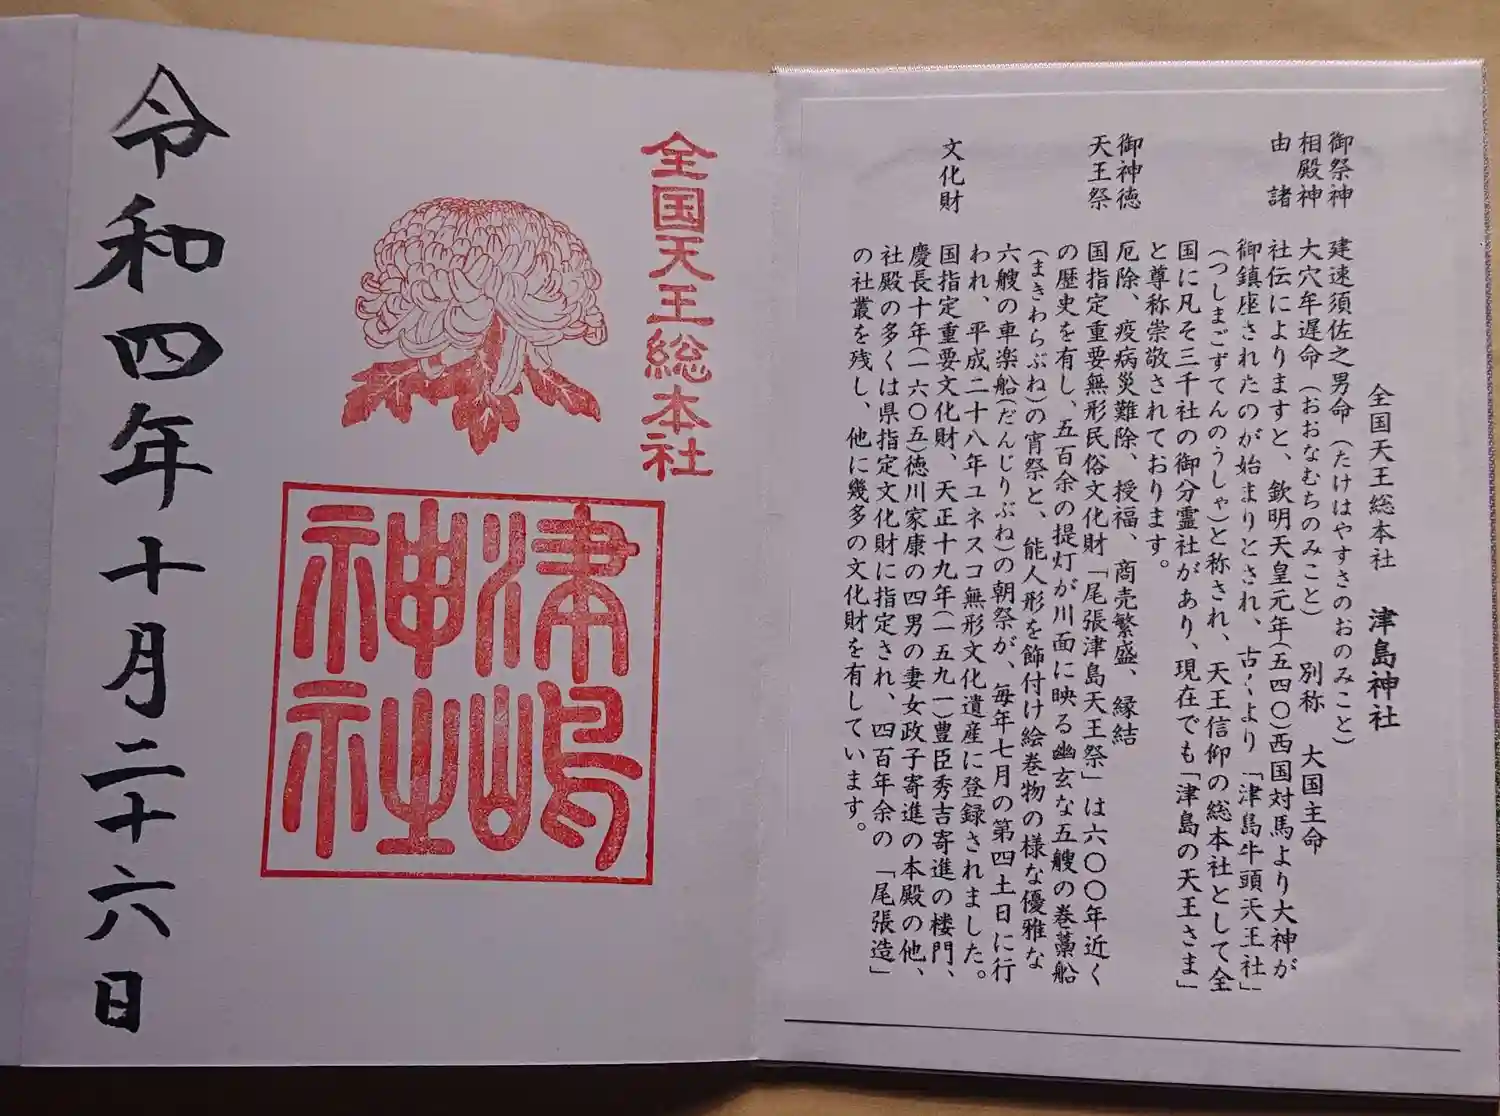 全国天王総本社 津島神社
御祭神 建速須佐之男命（たけはやすさのおのみこと）
相殿神 大穴牟遅命（おおなむちのみこと） 別称 大国主命
由諸 社伝によりますと、欽明天皇元年(五四〇)西国対馬より大神が
御鎮座されたのが始まりとされ、古くより「津島牛頭天王社」
（つしまごずてんのうしゃ）と称され、天王信仰の総本社として全
国に凡そ三千社の御分霊社があり、現在でも「津島の天王さま」
と尊称崇敬されております。
御神徳 厄除、疫病災難除、授福、商売繁盛、縁結
天王祭 国指定重要無形民俗文化財「尾張津島天王祭」は六〇〇年近く
の歴史を有し、五百余の提灯が川面に映る幽玄な五艘の巻藁船
（まきわらぶね）の宵祭と、能人形を飾付け絵巻物の様な優雅な
六艘の車楽船(だんじりぶね)の朝祭が、毎年七月の第四土日に行
われ、平成二十八年ユネスコ無形文化遺産に登録されました。
文化財 国指定重要文化財、天正十九年(一五九一)豊臣秀吉寄進の楼門、
慶長十年(一六〇五)徳川家康の四男の妻女政子寄進の本殿の他、
社殿の多くは県指定文化財に指定され、四百年余の「尾張造」
の社叢を残し、他に幾多の文化財を有しています。
全国天王総本社
津嶋
神社
令和四年十月二十六日